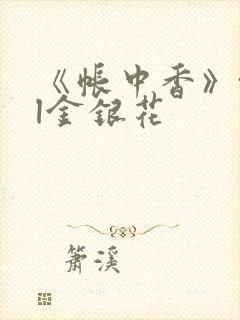 《帐中香》
|金银花
箫溪